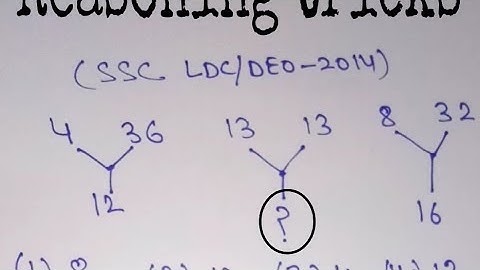 Reasoning tricks
(SSC LDC/DEO-2014)
4 36 13 13 8 32
12 ? 16